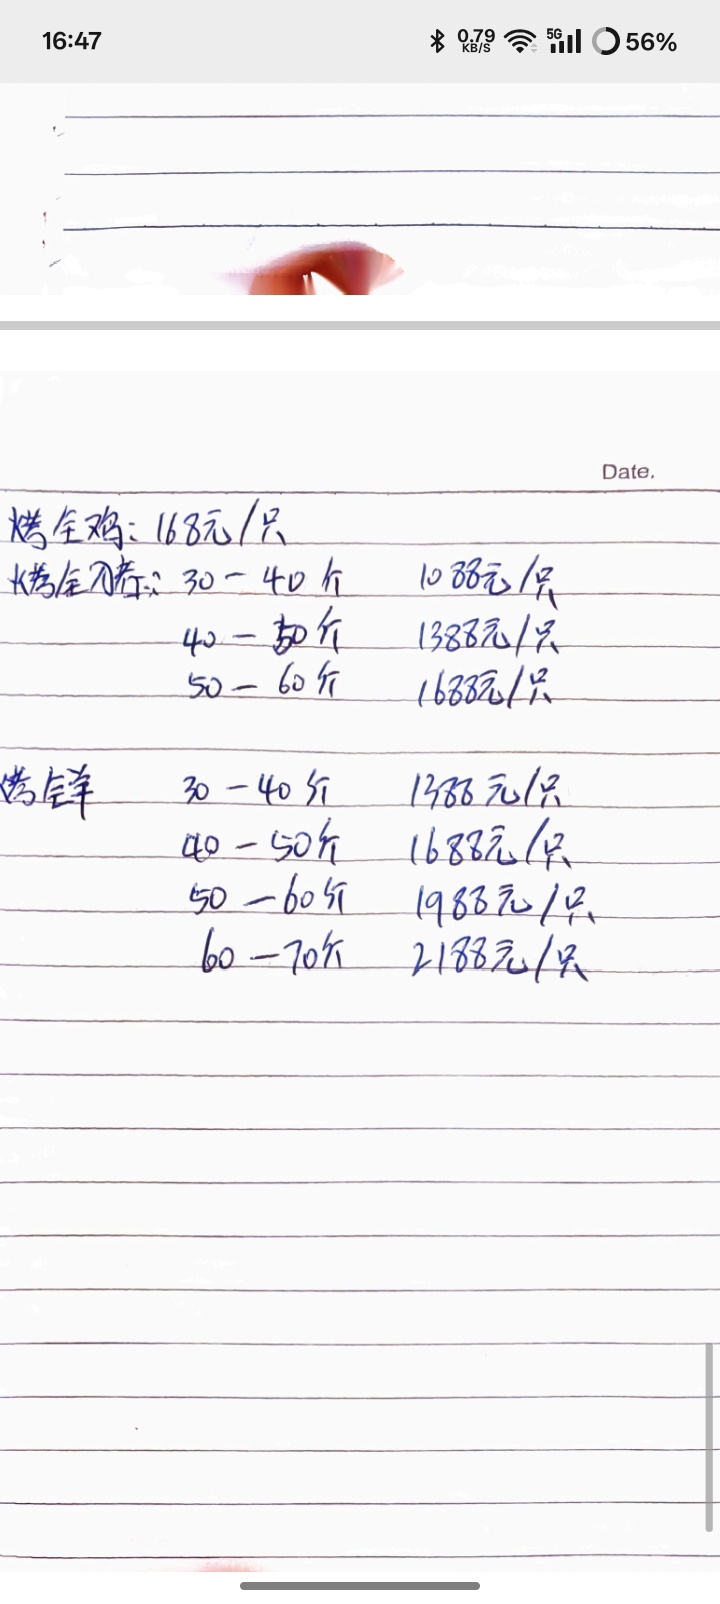 16:47 0.79 KB/S 5G 56%
Date.
烤全鸡: 168元/只
烤全乃猪: 30-40斤 1088元/只
40-50斤 1388元/只
50-60斤 1688元/只
烤全羊 30-40斤 1388元/只
40-50斤 1688元/只
50-60斤 1988元/只
60-70斤 2188元/只